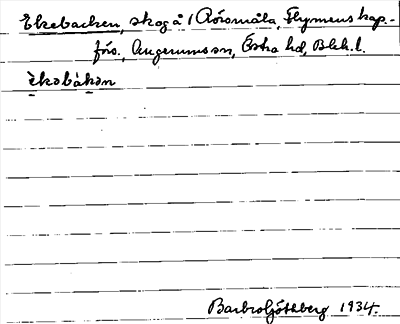 Ekebacken, skog å 1 Rörsmåla, Flymens kap.-
förs., Augerums sn, Östra hd, Blek.l.
èkabàkən
Barbro Göthberg 1934.